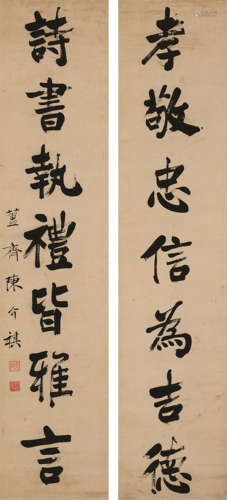 孝敬忠信為吉德
詩書執禮皆雅言
簠齋陳介祺